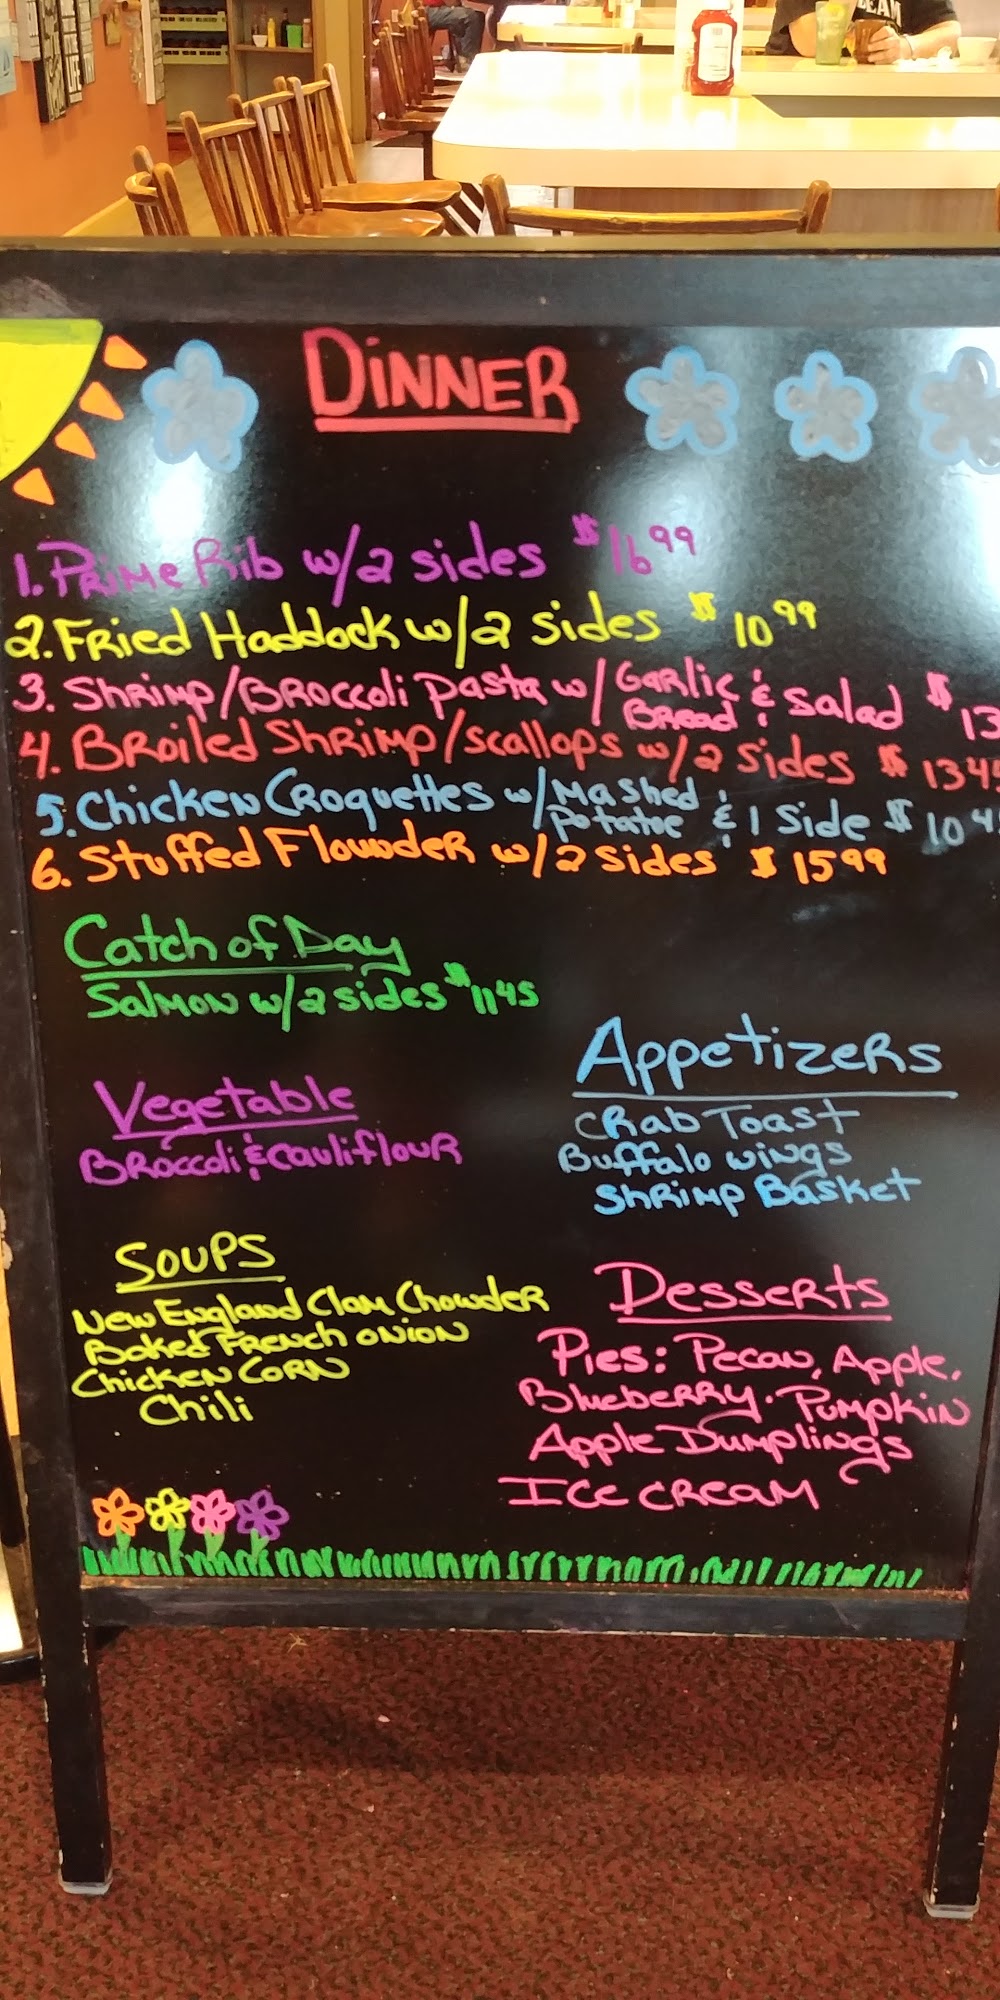 DINNER
1. Prime Rib w/2 sides $16.99
2. Fried Haddock w/2 sides $10.99
3. Shrimp/Broccoli pasta w/ Garlic Bread & Salad $13
4. Broiled Shrimp/scallops w/2 sides $13.45
5. Chicken Croquettes w/ Mashed Potatoe & 1 Side $10.4
6. Stuffed Flounder w/2 sides $15.99
Catch of Day
Salmon w/2 sides $11.45
Appetizers
Crab Toast
Buffalo wings
Shrimp Basket
Vegetable
Broccoli & cauliflour
Soups
New England Clam Chowder
Baked French onion
Chicken Corn
Chili
Desserts
Pies: Pecan, Apple,
Blueberry. Pumpkin
Apple Dumplings
Ice cream